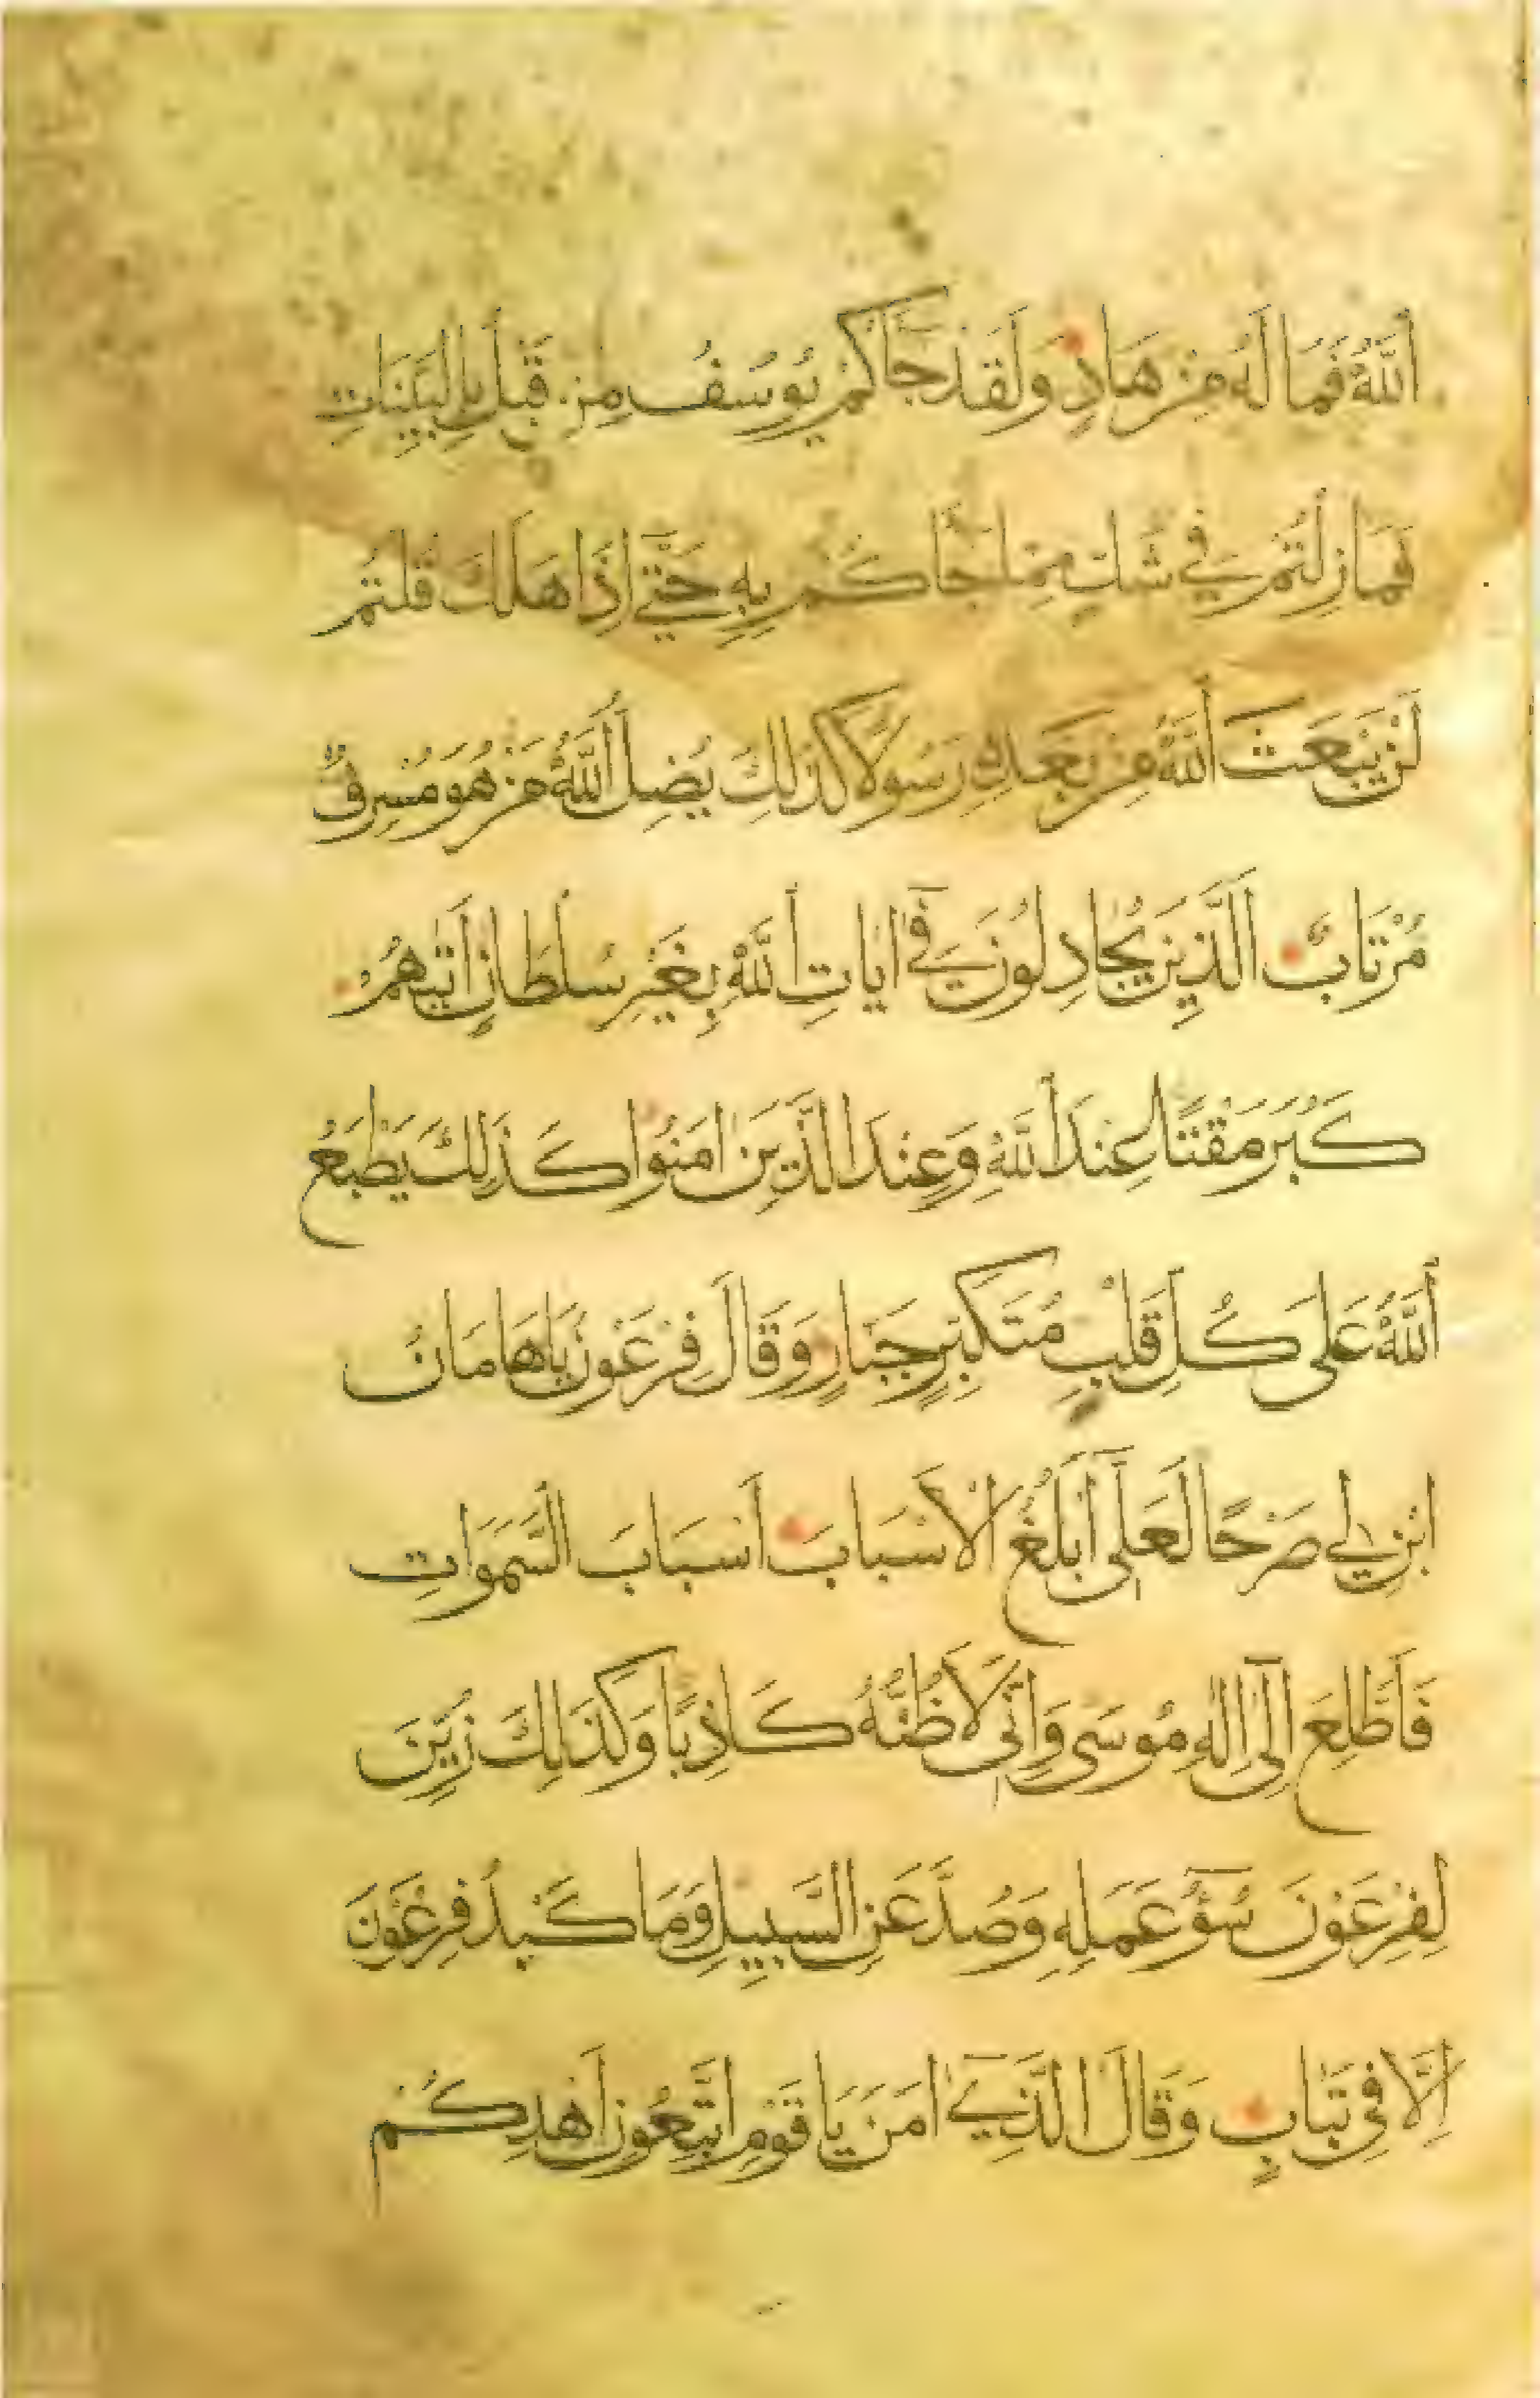 ٱللَّهُ فَمَا لَهُ مِنْ هَادٍ وَلَقَدْ جَاكُمْ يُوسُفُ مِنْ قَبْلُ بِالْبَيِّنَاتِ
فَمَا زِلْتُمْ فِي شَكٍّ مِمَّا جَاكُمْ بِهِ حَتَّى إِذَا هَلَكَ قُلْتُمْ
لَنْ يَبْعَثَ ٱللَّهُ مِنْ بَعْدِهِ رَسُولًا كَذَلِكَ يُضِلُّ ٱللَّهُ مَنْ هُوَ مُسْرِفٌ
مُرْتَابٌ الَّذِينَ يُجَادِلُونَ فِي آيَاتِ ٱللَّهِ بِغَيْرِ سُلْطَانٍ أَتَيهُمْ
كَبُرَ مَقْتًا عِنْدَ ٱللَّهِ وَعِنْدَ الَّذِينَ آمَنُوا كَذَلِكَ يَطْبَعُ
ٱللَّهُ عَلَى كُلِّ قَلْبٍ مُتَكَبِّرٍ جَبَّارٍ وَقَالَ فِرْعَوْنُ يَا هَامَانُ
ابْنِ لِي صَرْحًا لَعَلِّي أَبْلُغُ الْأَسْبَابَ أَسْبَابَ السَّمَوَاتِ
فَأَطَّلِعَ إِلَى إِلَهِ مُوسَى وَإِنِّي لَأَظُنُّهُ كَاذِبًا وَكَذَالِكَ زُيِّنَ
لِفِرْعَوْنَ سُوءُ عَمَلِهِ وَصُدَّ عَنِ السَّبِيلِ وَمَا كَيْدُ فِرْعَوْنَ
إِلَّا فِي تَبَابٍ وَقَالَ الَّذِي آمَنَ يَا قَوْمِ اتَّبِعُونِ أَهْدِكُمْ